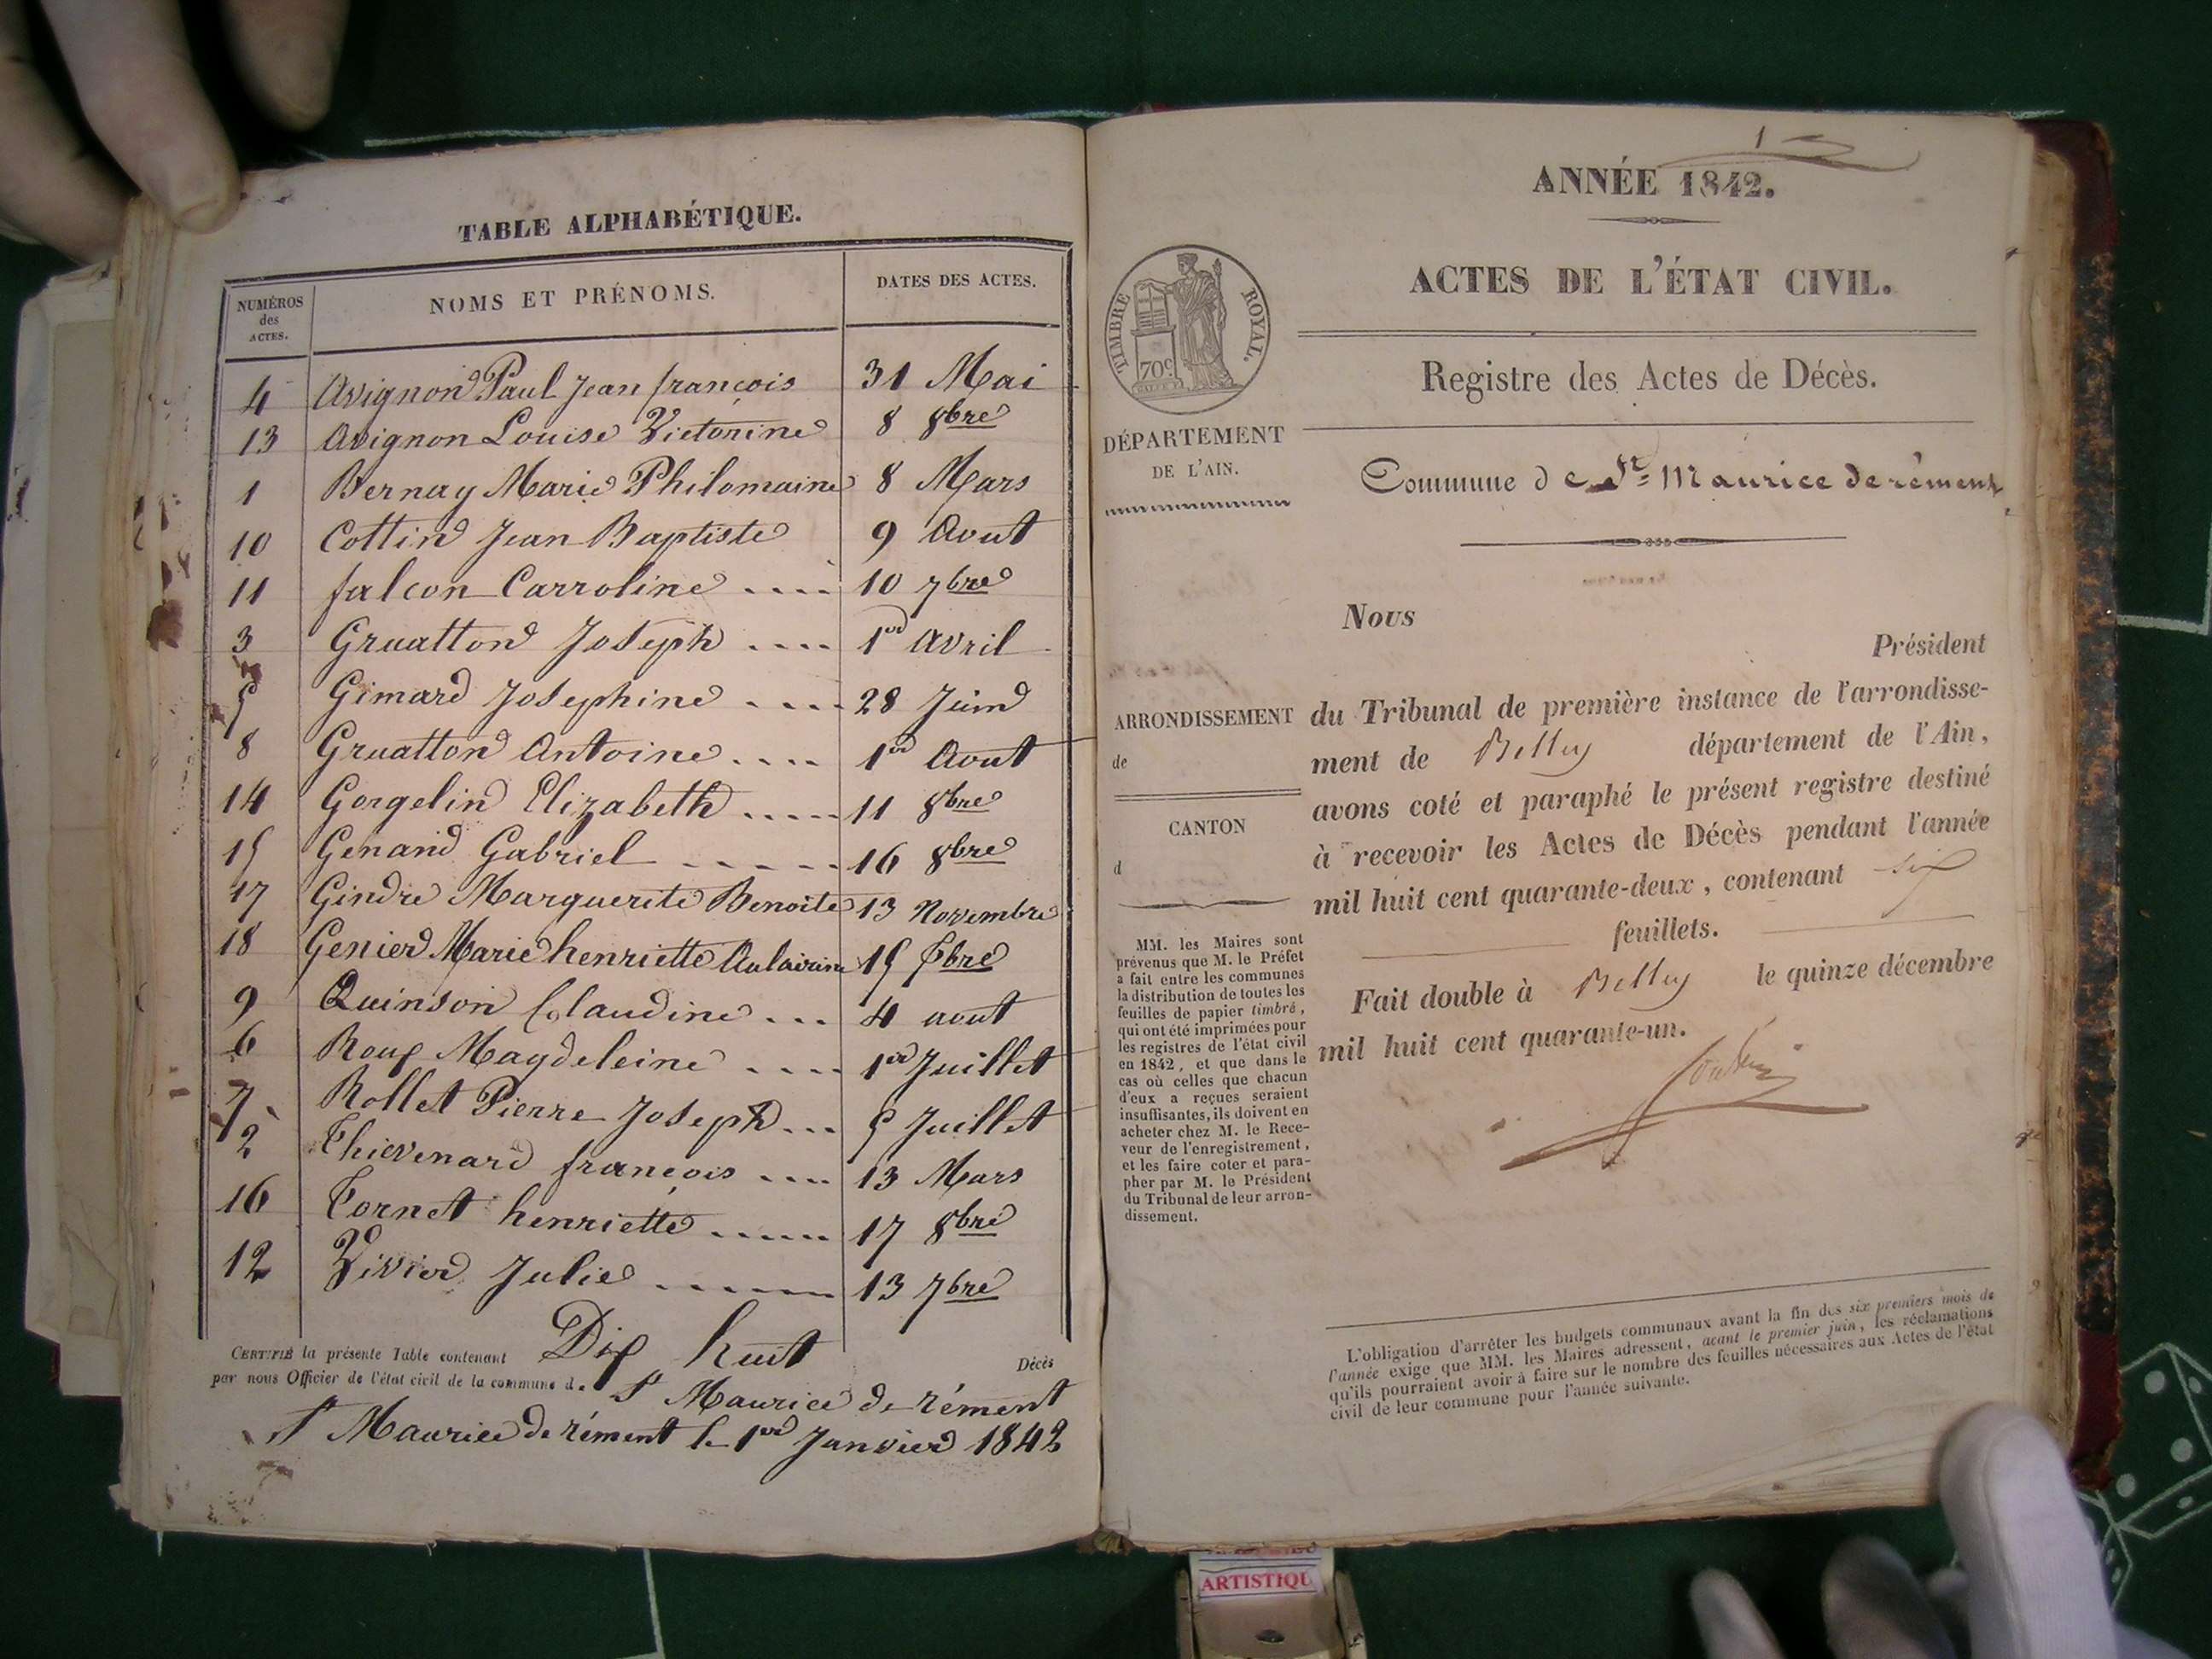 TABLE ALPHABÉTIQUE.
NUMÉROS des ACTES. NOMS ET PRÉNOMS. DATES DES ACTES.
4 Avignon Paul Jean françois 31 Mai
13 Avignon Louise Victorine 8 8bre
1 Bernay Marie Philomaine 8 Mars
10 Cottin Jean Baptiste 9 Aout
11 falcon Carroline .... 10 7bre
3 Gruatton Joseph .... 1er avril
5 Gimard Josephine .... 28 Juin
8 Gruatton Antoine .... 1er Aout
14 Gorgelin Elizabeth ..... 11 8bre
15 Genand Gabriel ..... 16 8bre
17 Gindre Marguerite Benoite 13 Novembre
18 Genier Marie henriette 15
9 Quinson Claudine ... 4 aout
6 Roux Magdeleine .... 1er Juillet
7 Rollet Pierre Joseph ... 5 Juillet
2 Thievenard françois .... 13 Mars
16 Tornet henriette ..... 17 8bre
12 Vivier Julie ...... 13 7bre
CERTIFIÉ la présente Table contenant Dix huit Décès
par nous Officier de l'état civil de la commune d. St Maurice de rément
St Maurice de rément le 1er Janvier 1842
13
ANNÉE 1842.
ACTES DE L'ÉTAT CIVIL.
TIMBRE ROYAL.
70c
Registre des Actes de Décès.
DÉPARTEMENT
DE L'AIN.
Commune de St Maurice de rément
Nous
Président
ARRONDISSEMENT
de
CANTON
d
du Tribunal de première instance de l'arrondisse-
ment de Belley département de l'Ain,
avons coté et paraphé le présent registre destiné
à recevoir les Actes de Décès pendant l'année
mil huit cent quarante-deux, contenant six
feuillets.
Fait double à Belley le quinze décembre
mil huit cent quarante-un.
MM. les Maires sont
prévenus que M. le Préfet
a fait entre les communes
la distribution de toutes les
feuilles de papier timbré,
qui ont été imprimées pour
les registres de l'état civil
en 1842, et que dans le
cas où celles que chacun
d'eux a reçues seraient
insuffisantes, ils doivent en
acheter chez M. le Rece-
veur de l'enregistrement,
et les faire coter et para-
pher par M. le Président
du Tribunal de leur arron-
dissement.
L'obligation d'arrêter les budgets communaux avant la fin des six premiers mois de
l'année exige que MM. les Maires adressent, avant le premier juin, les réclamations
qu'ils pourraient avoir à faire sur le nombre des feuilles nécessaires aux Actes de l'état
civil de leur commune pour l'année suivante.
ARTISTIQU